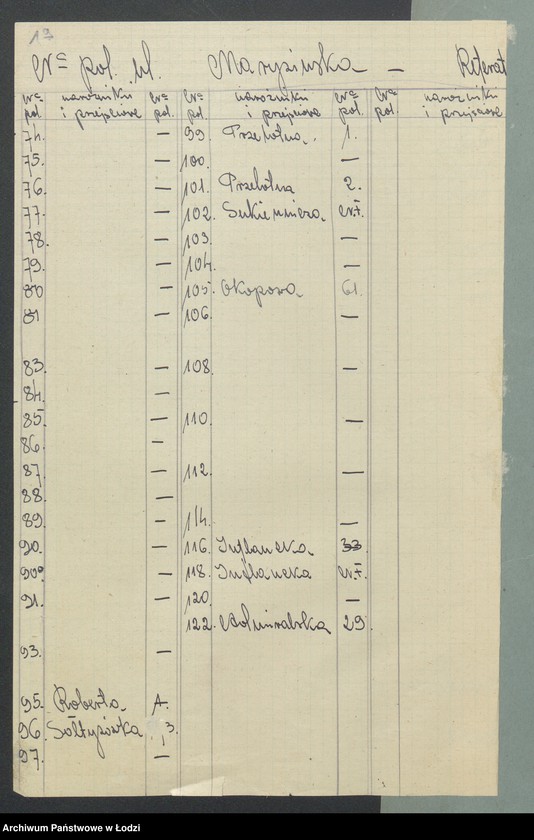 19
Nr pol. ul. Marysińska — Referat
Nr pol. narożniki i przejściowe Nr pol. Nr pol. narożniki i przejściowe Nr pol. Nr pol. narożniki i przejściowe
74. — 99. Przelotna. 1.
75. — 100. —
76. — 101. Przelotna 2.
77. — 102. Sukiennicza nr.
78. — 103. —
79. — 104. —
80 — 105. Okopowa 61.
81 — 106. —
83. — 108. —
84. —
85 — 110. —
86 —
87 — 112. —
88. —
89. — 114. —
90. — 116. Inflancka 33.
90a — 118. Inflancka nr.
91. — 120. —
122. 29.
93. —
95. Roberta A.
96 Sołtysówka 13.
97. —
Archiwum Państwowe w Łodzi